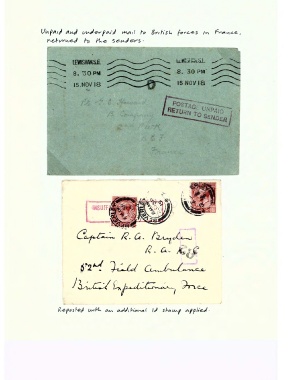 Unpaid and underpaid mail to British forces in France,
returned to the senders.
LEWISHAM.S.E.
8. 30 PM
15 NOV 18
LEWISHAM.S.E.
8. 30 PM
15 NOV 18
POSTAGE UNPAID
RETURN TO SENDER
Captain R. A. Bryden
R. A. M. C
52nd Field Ambulance
British Expeditionary Force
Reposted with an additional 1d stamp applied.